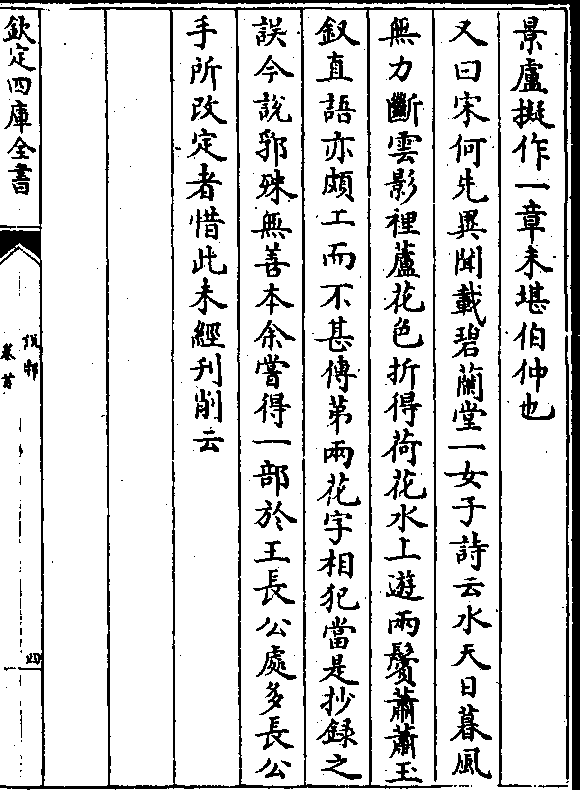 景盧擬作一章未堪伯仲也
又曰宋何先異聞載碧蘭堂一女子詩云水天日暮風
無力斷雲影裡蘆花色折得荷花水上遊兩鬢蕭蕭玉
釵直語亦頗工而不甚傳第兩花字相犯當是抄録之
誤今說郛殊無善本余嘗得一部於王長公處多長公
手所改定者惜此未經刋削云
欽定四庫全書
說郛
卷首
四